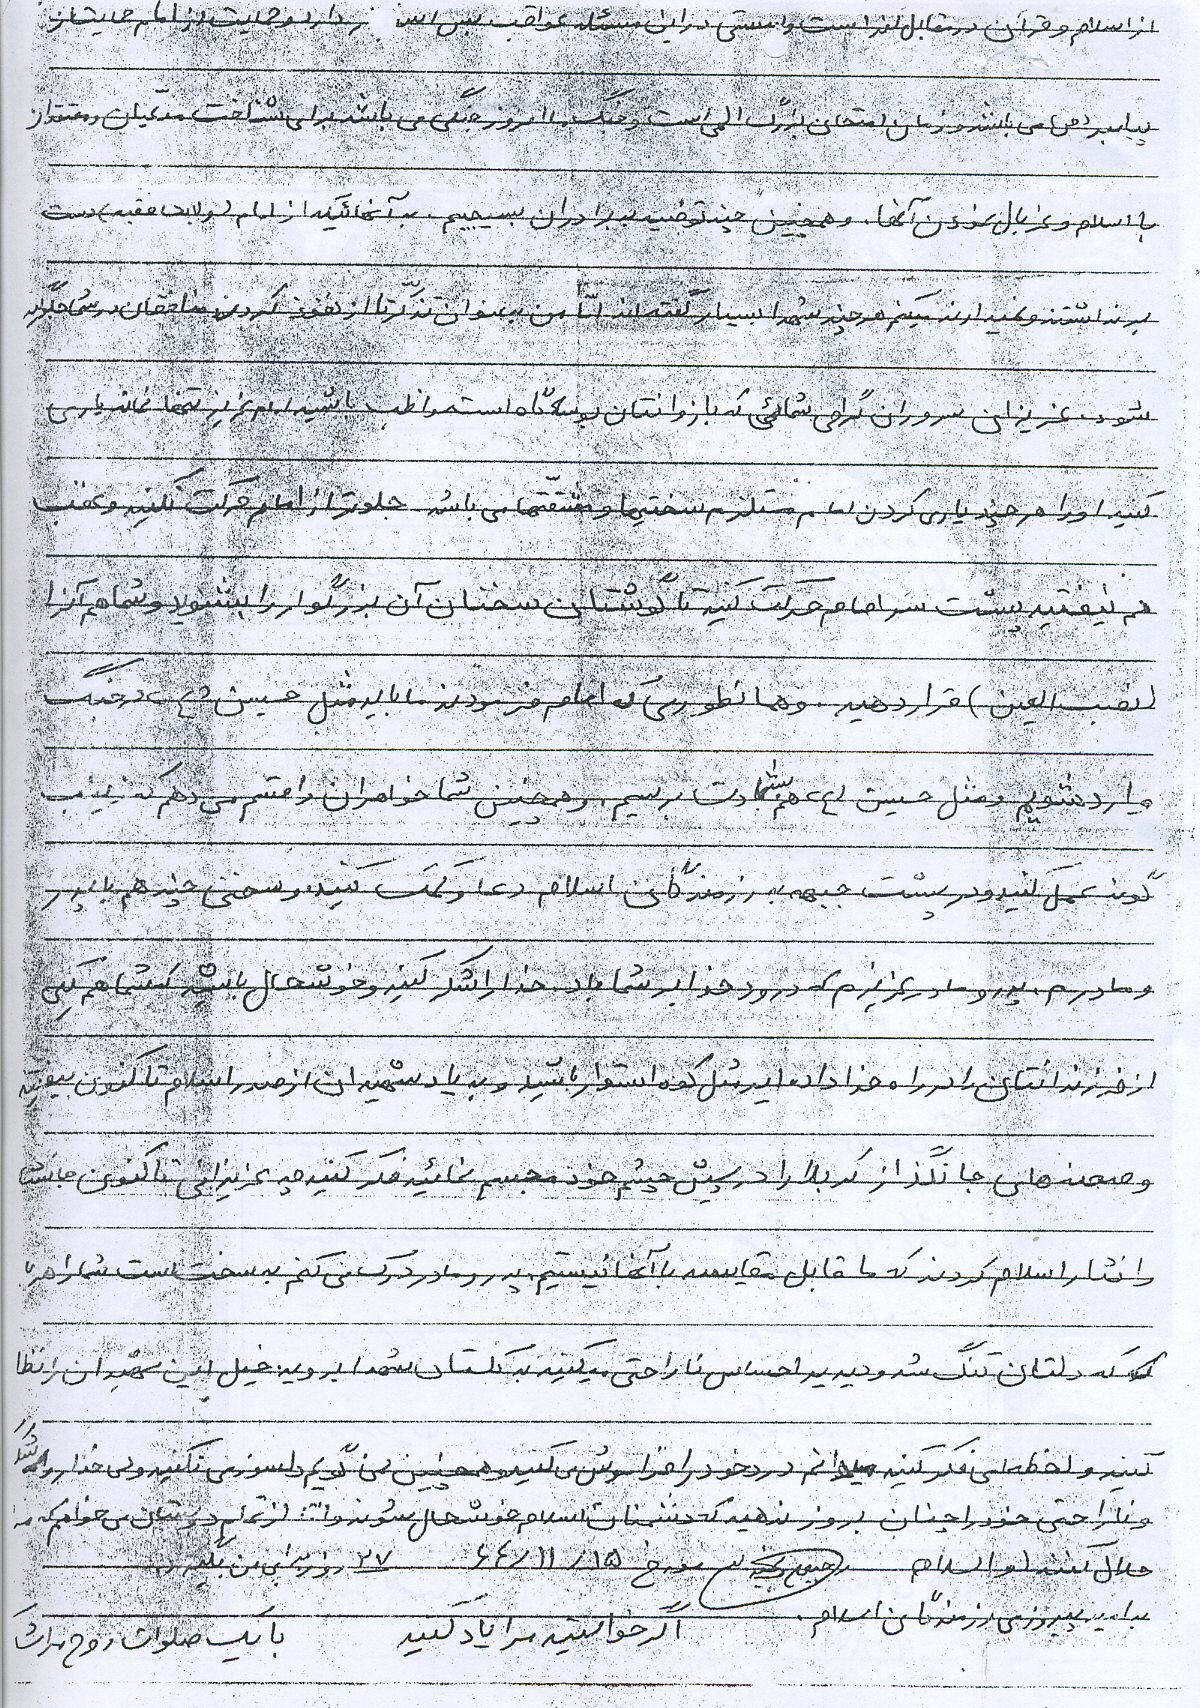 از اسلام و قرآن در مقابل کفر است و سستی در این مسئله عواقب بس دارد و حمایت از امام حمایت از
پیامبر (ص) می باشد و زمان امتحان بزرگ الهی است و جنگ امروز جنگی می باشد برای شناخت مدعیان و معتقدان
با اسلام و غربال نمودن آنها. و همچنین چند توصیه به برادران بسیجیم. به آنهائیکه از امام (ولایت فقیه) دست
بر نداشتند و نمیدارند میکنم هر چند شهدا بسیار گفته اند امّا من به عنوان تذکّر تا از نفوذ کردن منافقان در شما جلوگیری
شود. عزیزان سروران گرامی شمائی که بازوانتان بوسه گاه است مواظب باشید امام عزیز تنها نماند یاری
کنید او را هر چند یاری کردن امام مستلزم سختیها و مشقّتها می باشد جلوتر از امام حرکت نکنید و عقب
هم نیفتید پشت سر امام حرکت کنید تا گوشتان سخنان آن بزرگوار را بشنود و شما هم آنرا
(نصب العین) قرار دهید. و همانطوری که امام فرمودند ما باید مثل حسین (ع) در جنگ
وارد شویم و مثل حسین (ع) هم بشهادت برسیم. و همچنین شما خواهران را قسم می دهم که زینب
گونه عمل کنید و در پشت جبهه به رزمندگان اسلام دعا و کمک کنید. و سخنی چند هم با پدر
و مادرم. پدر و مادر عزیزم که درود خدا بر شما باد. خدا را شکر کنید و خوشحال باشید که شما هم یکی
از فرزندانتان را در راه خدا داده اید مثل کوه استوار باشید و به یاد شهیدان از صدر اسلام تا کنون بیفتید
و صحنه های جانگداز کربلا را در پیش چشم خود مجسم نمائید فکر کنید چه عزیزانی تا کنون جانشان
را نثار اسلام کردند که ما قابل مقایسه با آنها نیستیم. پدر و مادر درک می کنم که سخت است شما را هر گا
که دلتان تنگ شد و دیدید احساس ناراحتی میکنید به گلستان شهدا بروید خیل این شهیدان را نظا
کنید و لحظه ای فکر کنید میدانم درد خود را فراموش می کنید و همچنین نمی گویم دلسوزی نکنید ولی خدا را شکر
و ناراحتی خود را چنان بروز ندهید که دشمنان اسلام خوشحال شوند و از تمام دوستان می خواهم که مرا
حلال کنند والسلام مورخ ۶۴/۱۱/۱۵ ۲۷ روز برای من بگیرید
به امید پیروزی رزمندگان اسلام.
اگر خواستید مرا یاد کنید با یک صلوات روح مرا شا